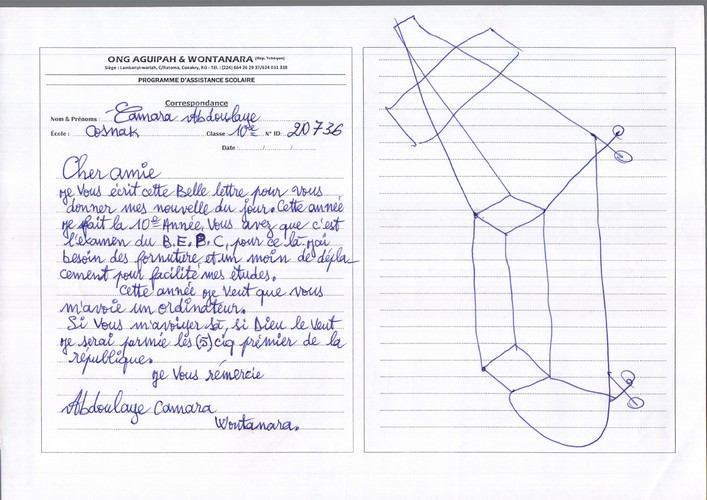 ONG AGUIPAH & WONTANARA (Rep. Tchèque)
Siège : Lambanyi-wariah, C/Ratoma, Conakry, RG - Tél. : (224) 664 26 29 37/624 031 338
PROGRAMME D'ASSISTANCE SCOLAIRE
Correspondance
Nom & Prénoms : Camara Abdoulaye
École : Cosnak Classe 10e N° ID: 20736
Date : ......./......./.......
Cher amie
Je Vous écrit cette Belle lettre pour vous
donner mes nouvelle du jour. Cette année
je fait la 10e Année. Vous avez que c'est
l'examen du B.E.P.C, pour ce là j'ai
besoin des fornuture et un moin de dépla-
cement pour facilité mes études.
Cette année je Veut que vous
m'avoie un ordinateur.
Si Vous m'avoiyer sa, si Dieu le Veut
je serai parmie les (5) ciq prémier de la
république.
je Vous rémercie
Abdoulaye Camara
Wontanara.